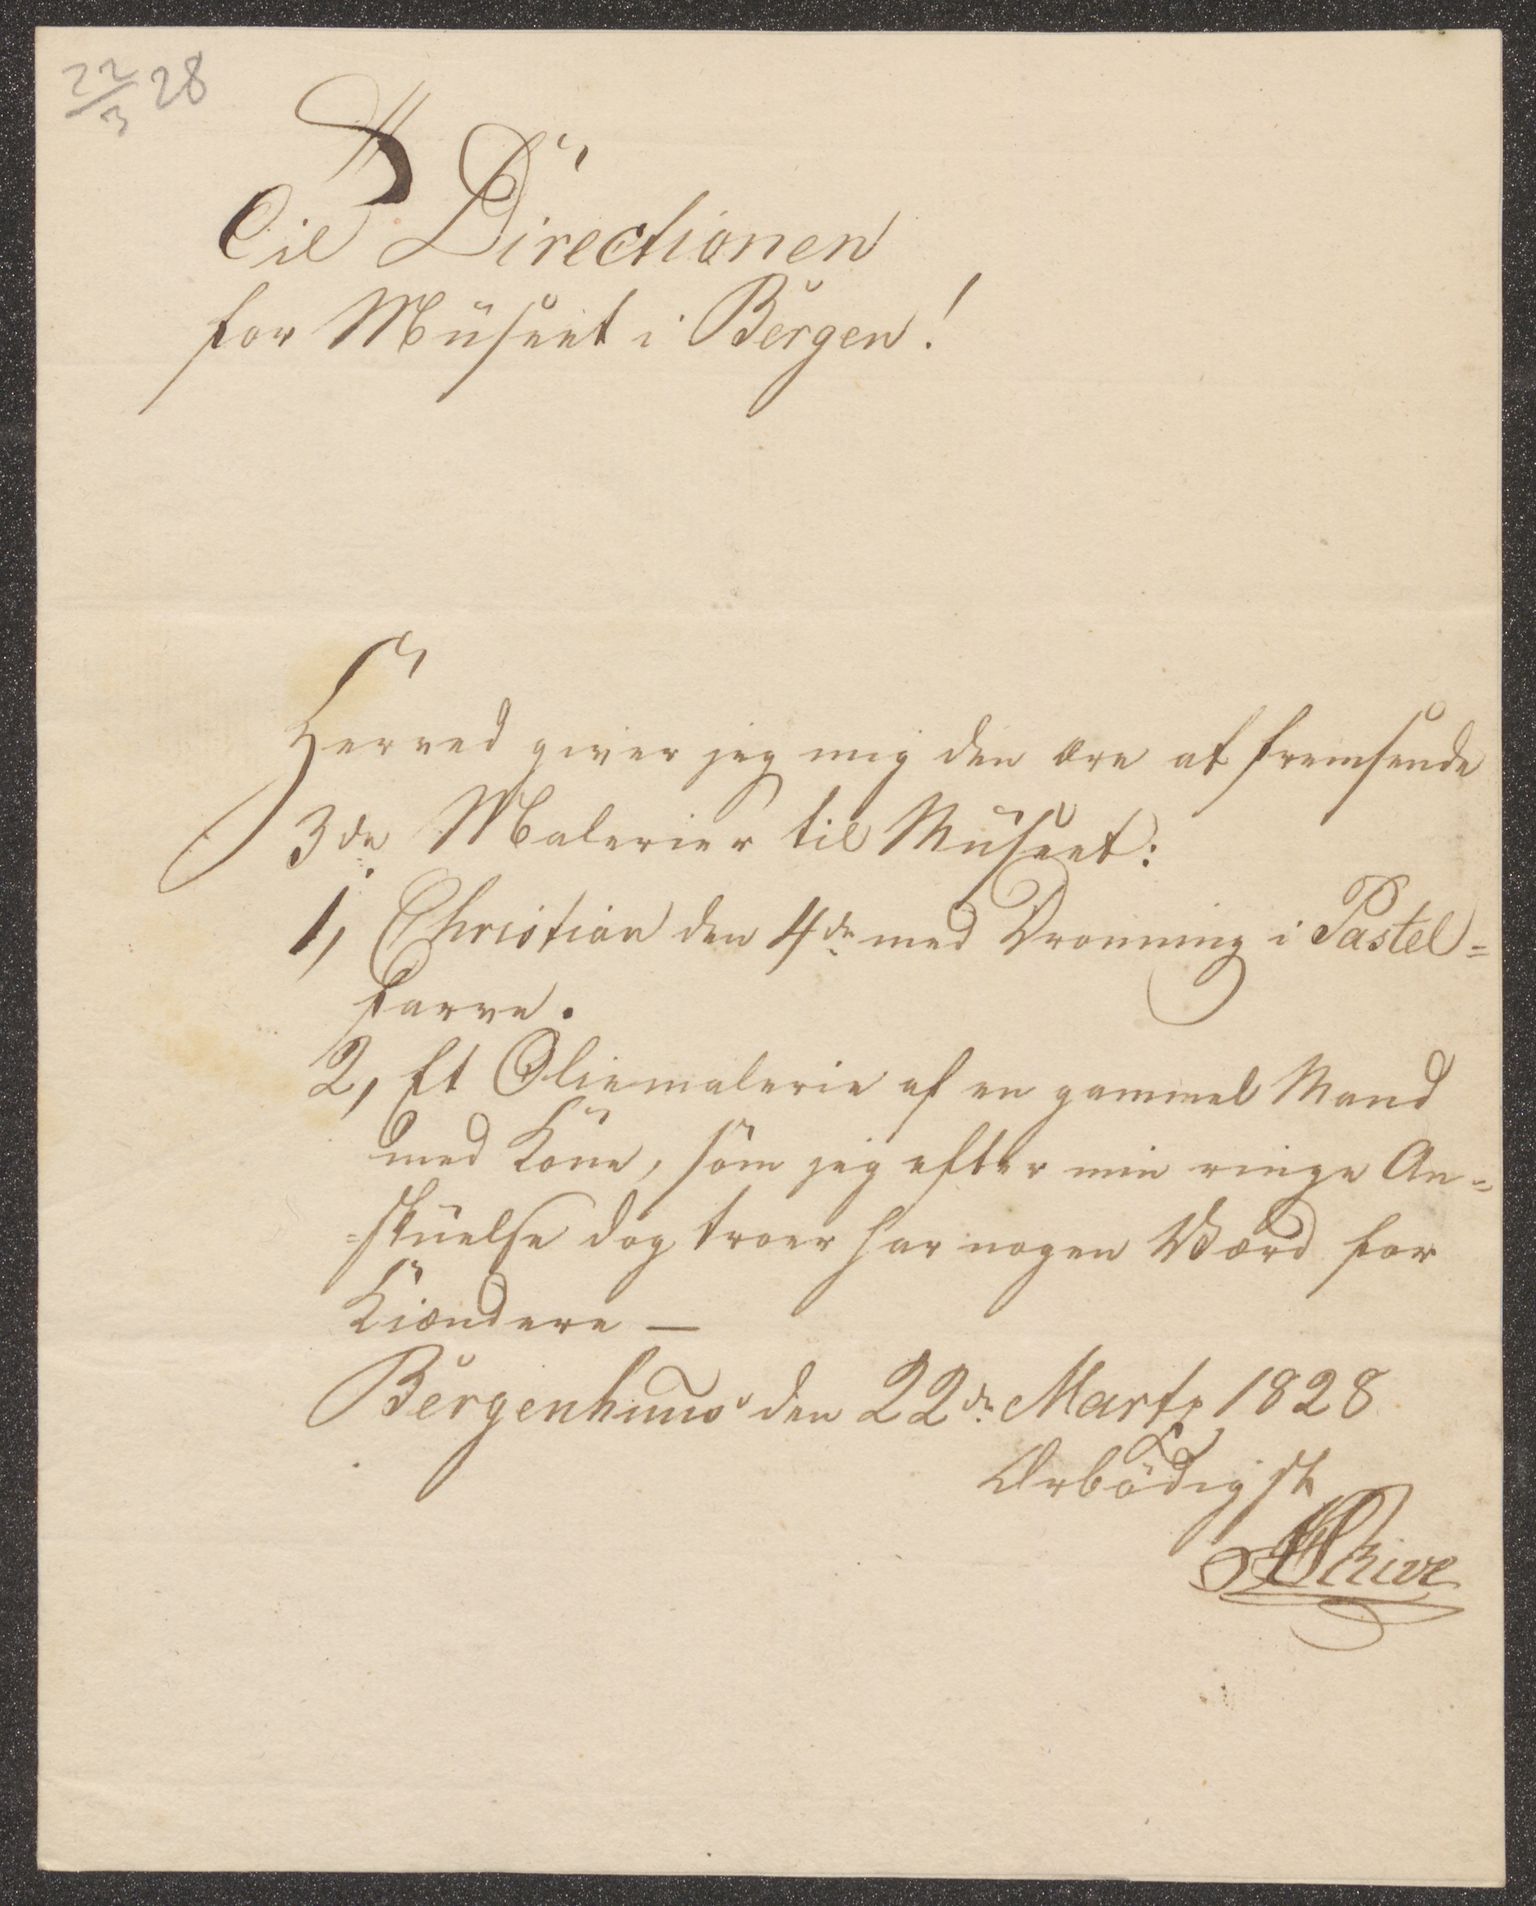 22/3 28
Til Directionen
for Museet i Bergen!
Herved giver jeg mig den ære at fremsende
3de Malerier til Museet:
1, Christian den 4de med Dronning i Pastel=
farve.
2, Et Oliemalerie af en gammel Mand
med Kone, som jeg efter min ringe An=
=skuelse dog troer har nogen Værd for
Kiændere —
Bergenhuus den 22de Martz 1828
Ærbödigst